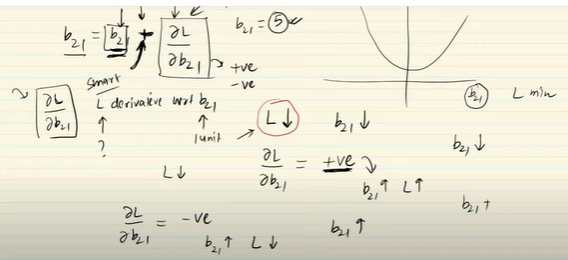 b₂₁ = b₂₁ + ∂L/∂b₂₁
b₂₁ = 5
+ve
-ve
b₂₁ L min
∂L/∂b₂₁
smart
L derivative wrt b₂₁
↑ ↑
? 1unit
L↓
L↓ b₂₁↓
b₂₁↓
∂L/∂b₂₁ = +ve
b₂₁↑ L↑
b₂₁+
∂L/∂b₂₁ = -ve
b₂₁↑ L↓
b₂₁↑